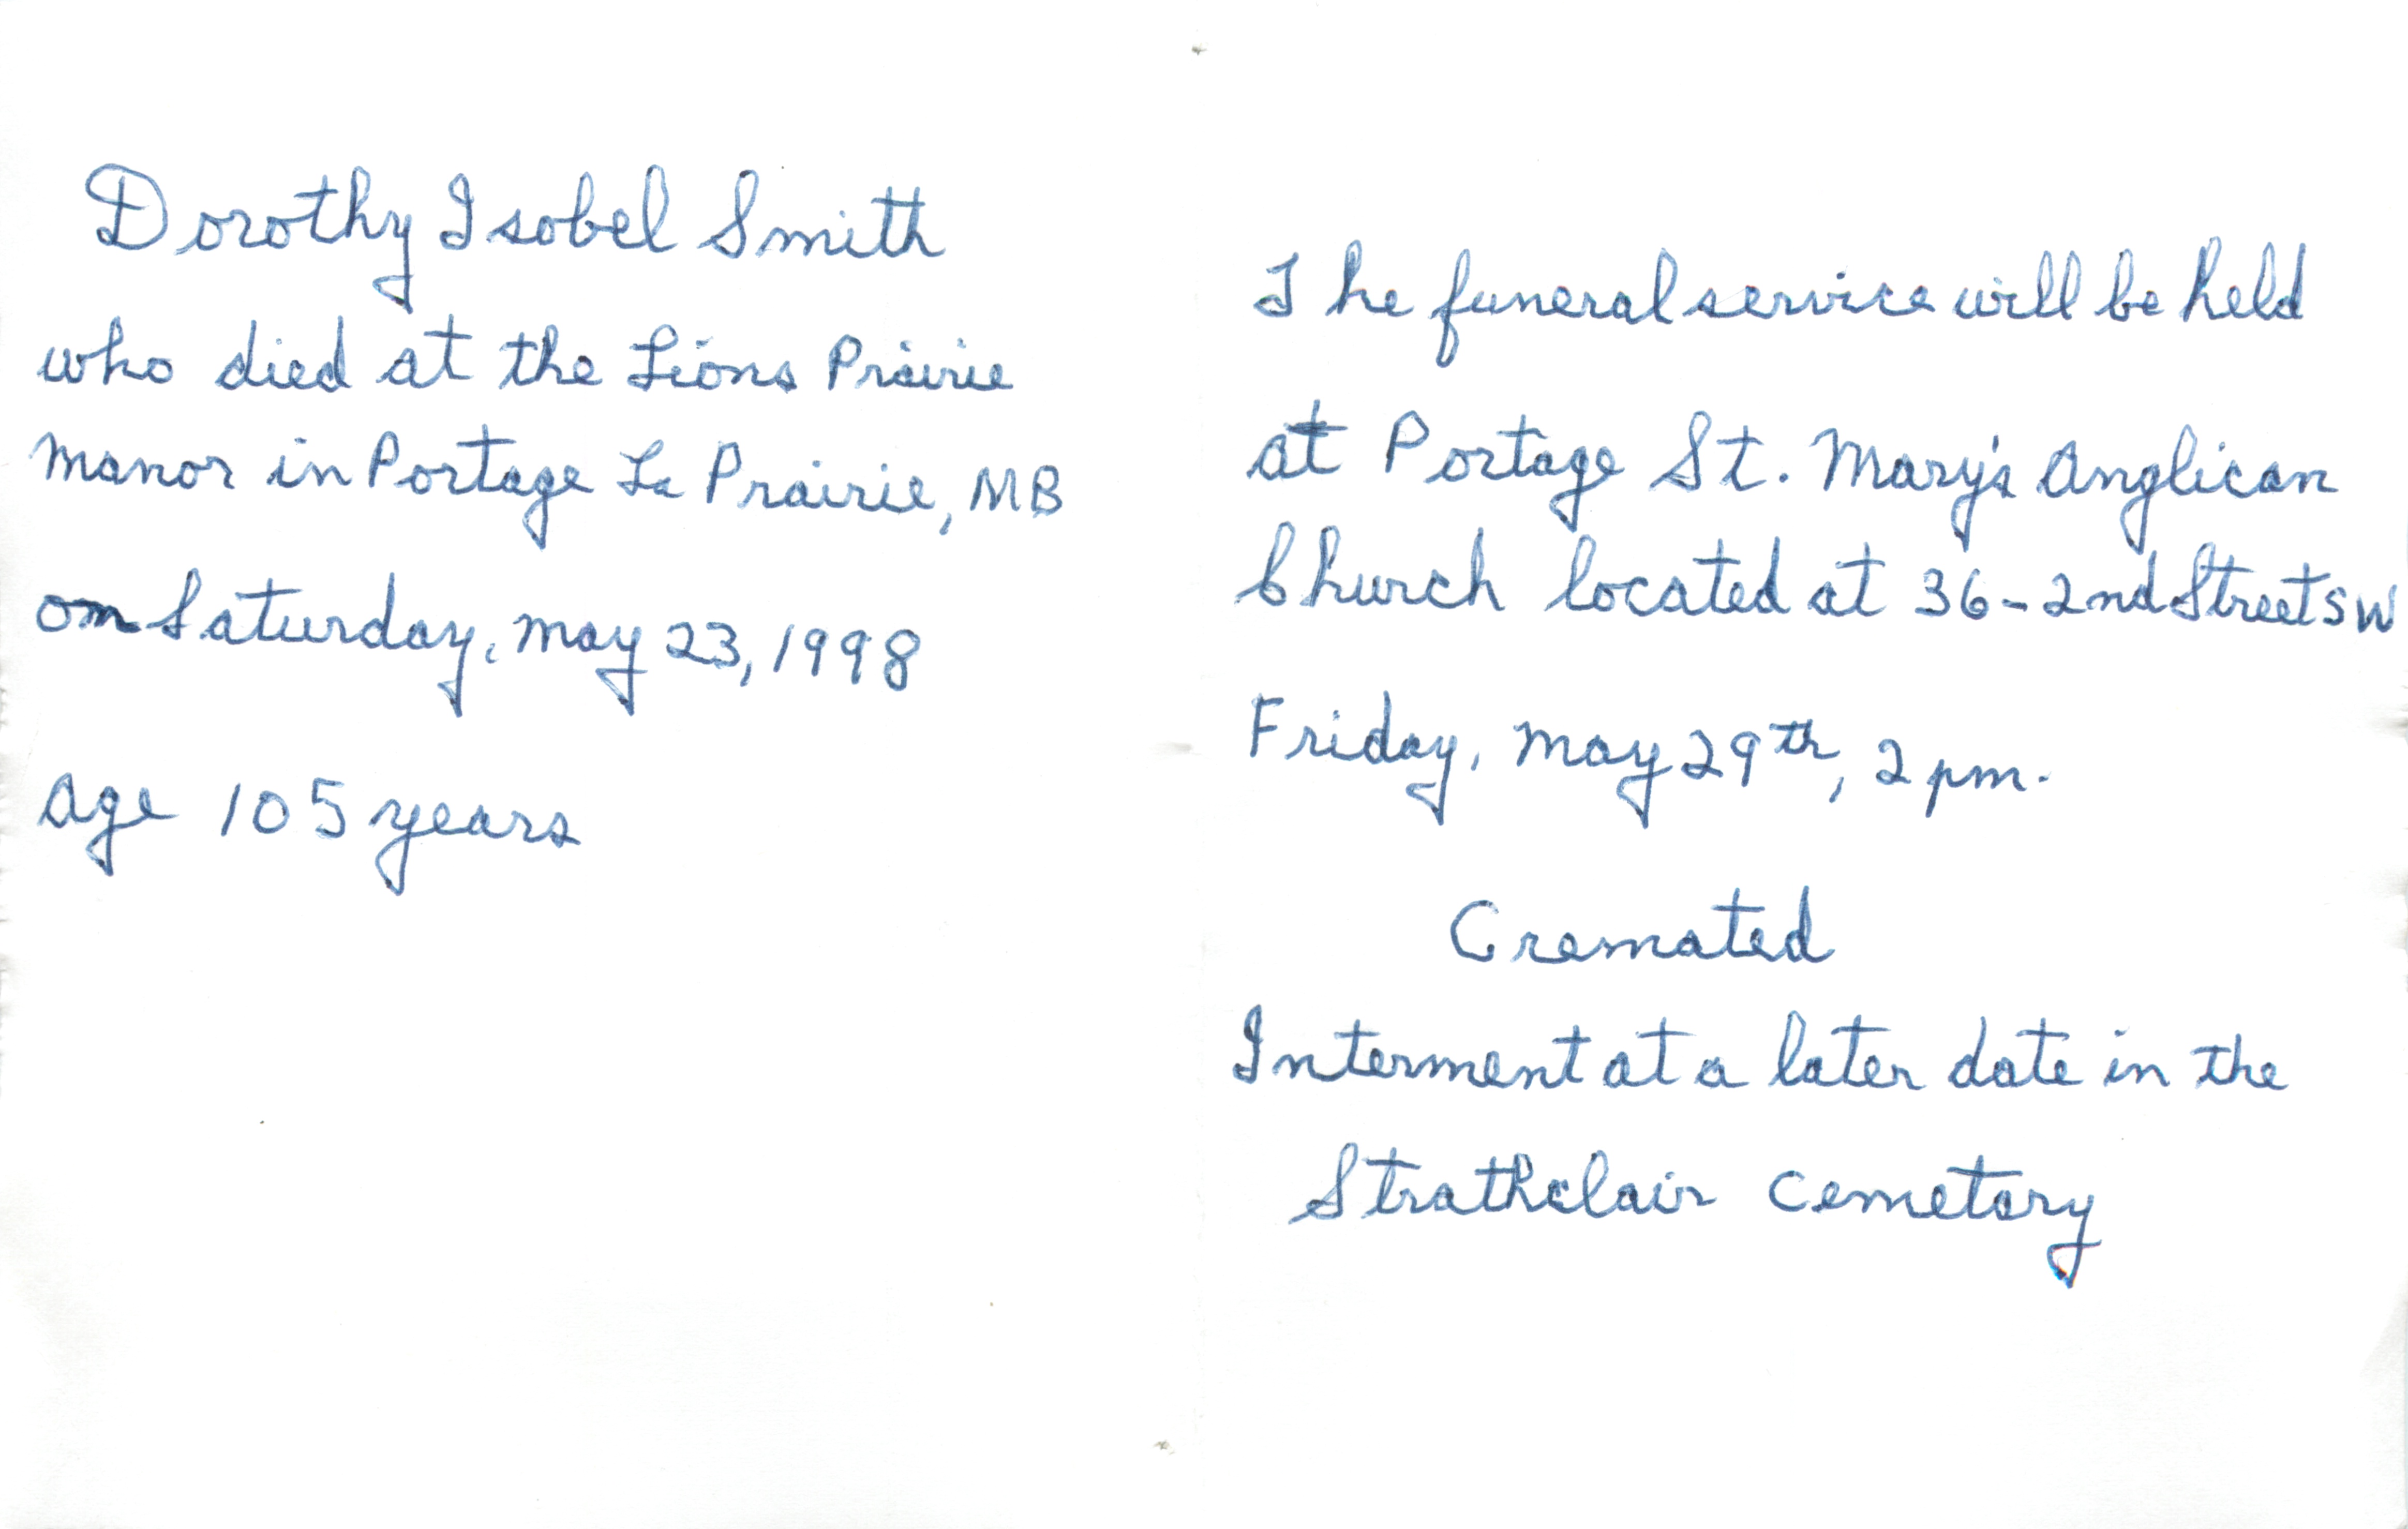 Dorothy Isobel Smith
who died at the Lions Prairie
Manor in Portage La Prairie, MB
on Saturday, May 23, 1998
Age 105 years
The funeral service will be held
at Portage St. Mary's Anglican
Church located at 36-2nd Street SW
Friday, May 29th, 2 pm.
Cremated
Interment at a later date in the
Strathclair Cemetary